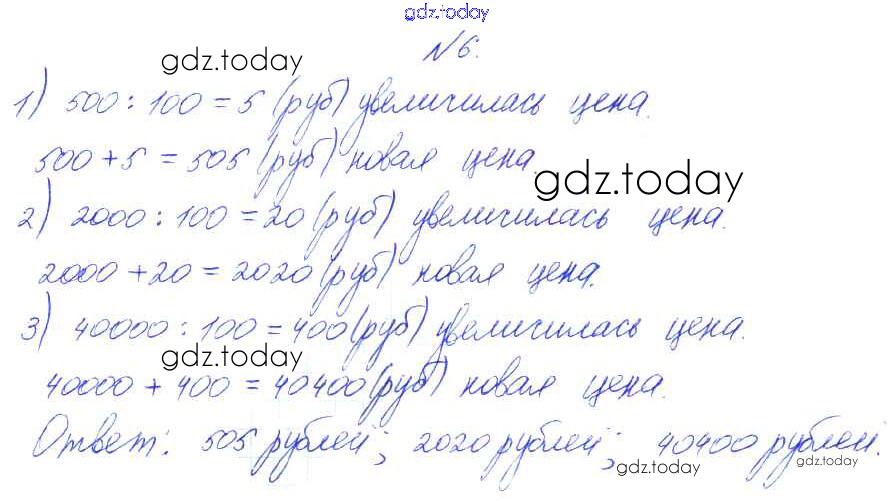 gdz.today
№6.
gdz.today
1) 500 : 100 = 5 (руб) увеличилась цена.
500 + 5 = 505 (руб) новая цена.
gdz.today
2) 2000 : 100 = 20 (руб) увеличилась цена.
2000 + 20 = 2020 (руб) новая цена.
3) 40000 : 100 = 400 (руб) увеличилась цена.
gdz.today
40000 + 400 = 40400 (руб) новая цена.
Ответ: 505 рублей; 2020 рублей; 40400 рублей.
gdz.today
gdz.today